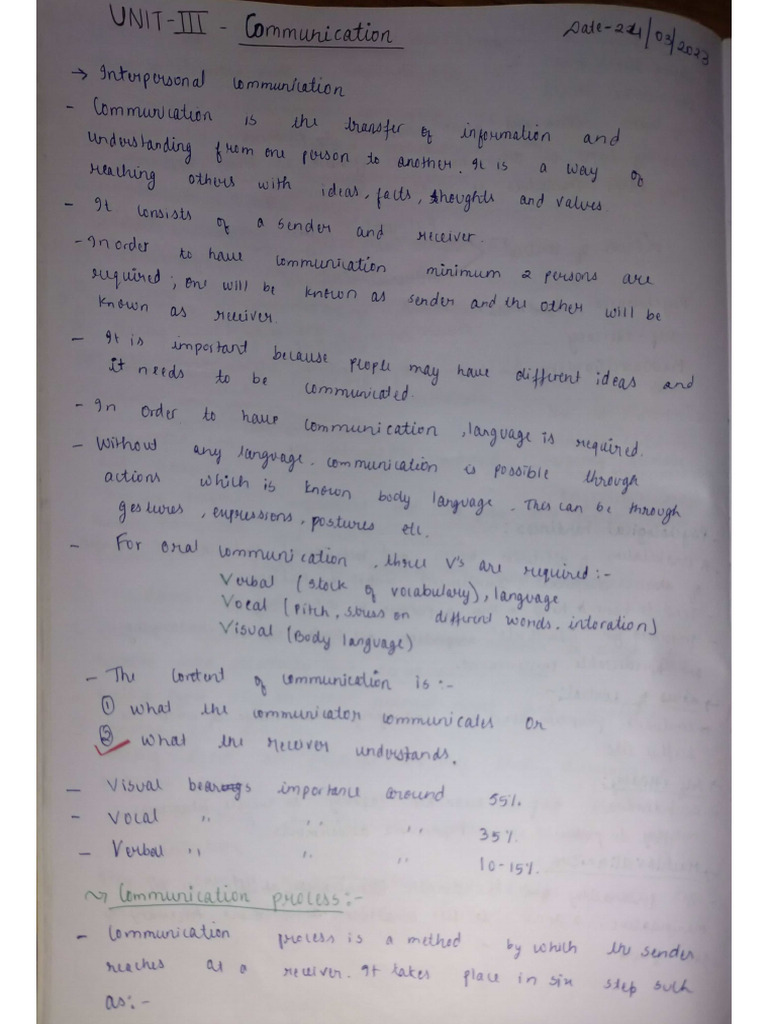 UNIT-III - Communication
Date-24/03/2023
→ Interpersonal communication
- Communication is the transfer of information and
understanding from one person to another. It is a way of
reaching others with ideas, facts, thoughts and values.
- It consists of a sender and receiver.
- In order to have communication minimum 2 persons are
required; one will be known as sender and the other will be
known as receiver.
- It is important because people may have different ideas and
it needs to be communicated.
- In order to have communication, language is required.
- Without any language, communication is possible through
actions which is known body language. This can be through
gestures, expressions, postures etc.
- For oral communication, three V's are required:-
Verbal (stock of vocabulary), language
Vocal (Pitch, stress on different words, intoration)
Visual (Body language)
- The content of communication is:-
① what the communicator communicates or
② what the receiver understands.
- Visual bearings importance around 55%.
- Vocal " " " 35%.
- Verbal " " " 10-15%.
Communication process:-
- Communication process is a method by which the sender
reaches at a receiver. It takes place in six step such
as:-